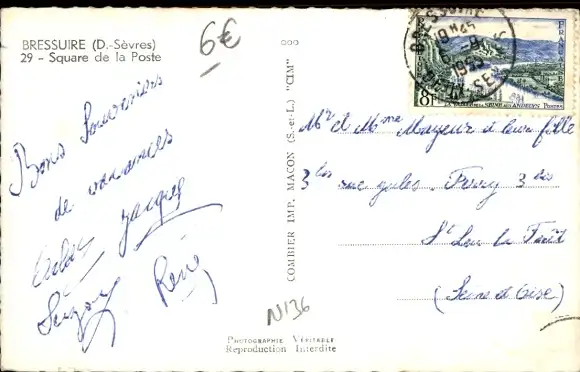 BRESSUIRE (D.-Sèvres)
29 - Square de la Poste
6€
Bons Souvenirs
de vacances
Jacques
René
N136
COMBIER IMP. MACON (S.-et-L.) "CIM"
PHOTOGRAPHIE VÉRITABLE
Reproduction Interdite
BRESSUIRE
19H45
1955
8F
LA VALLÉE DE LA SEINE AUX ANDELYS POSTES
Mr et Mme Mayeur et leur fille
3 bis rue jules Ferry 3 bis
St Leu la Forêt
(Seine et Oise)